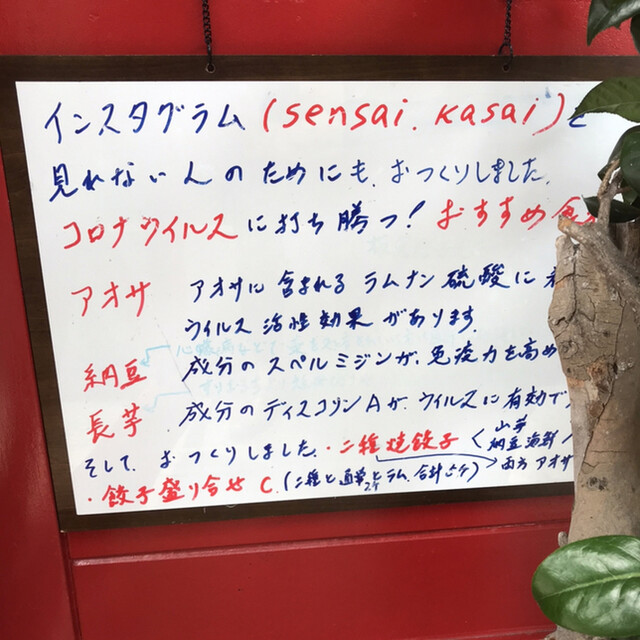 インスタグラム(sensai.kasai)を
見れない人のためにも、おつくりしました。
コロナウイルスに打ち勝つ!おすすめ食
アオサ アオサに含まれるラムナン硫酸に
ウイルス活性効果があります
納豆 成分のスペルミジンが、免疫力を高め
長芋 成分のディスコリンAが、ウイルスに有効で
そして、おつくりしました・二種焼餃子
山芋
納豆海鮮
・餃子盛り合せC.(二種と ラム、合計 ケ)両方アオサ